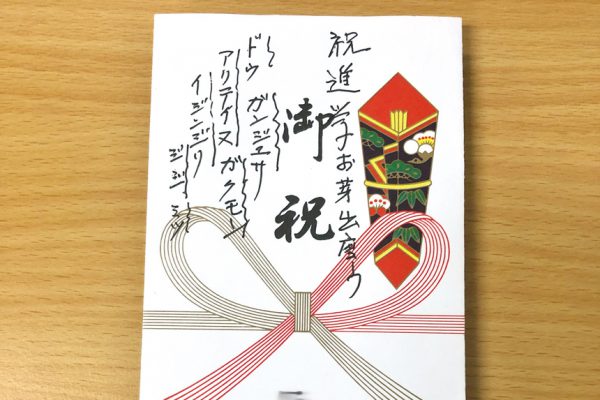 祝進学お芽出度う
御祝
ドウ ガンジエサ
アリテイヌ ガクモン
イジンジリ
ジジ ミツ